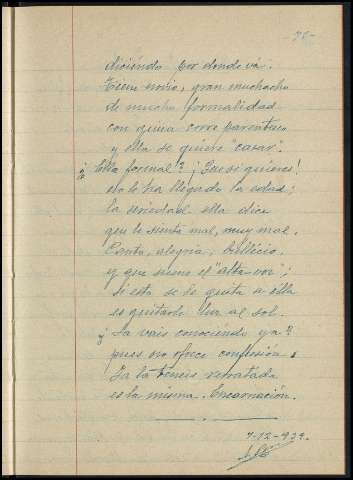 75-
diciéndo por donde vá.
Tiene novio, gran muchacho
de mucha formalidad
con quien corre parentesco
y ella se quiere "casar".
¿Ella formal? ¡Que si quieres!
no le ha llegado la edad;
la seriedad ella dice
que le sienta mal, muy mal.
Canto, alegria, bullicio,
y que suene el "alta voz";
si esto se le quita a ella
es quitarle luz al sol.
¿La vais conociéndo ya?
pues no ofrece confusión.
Ya la teneis retratada
es la misma. Encarnación.
7-12-939.